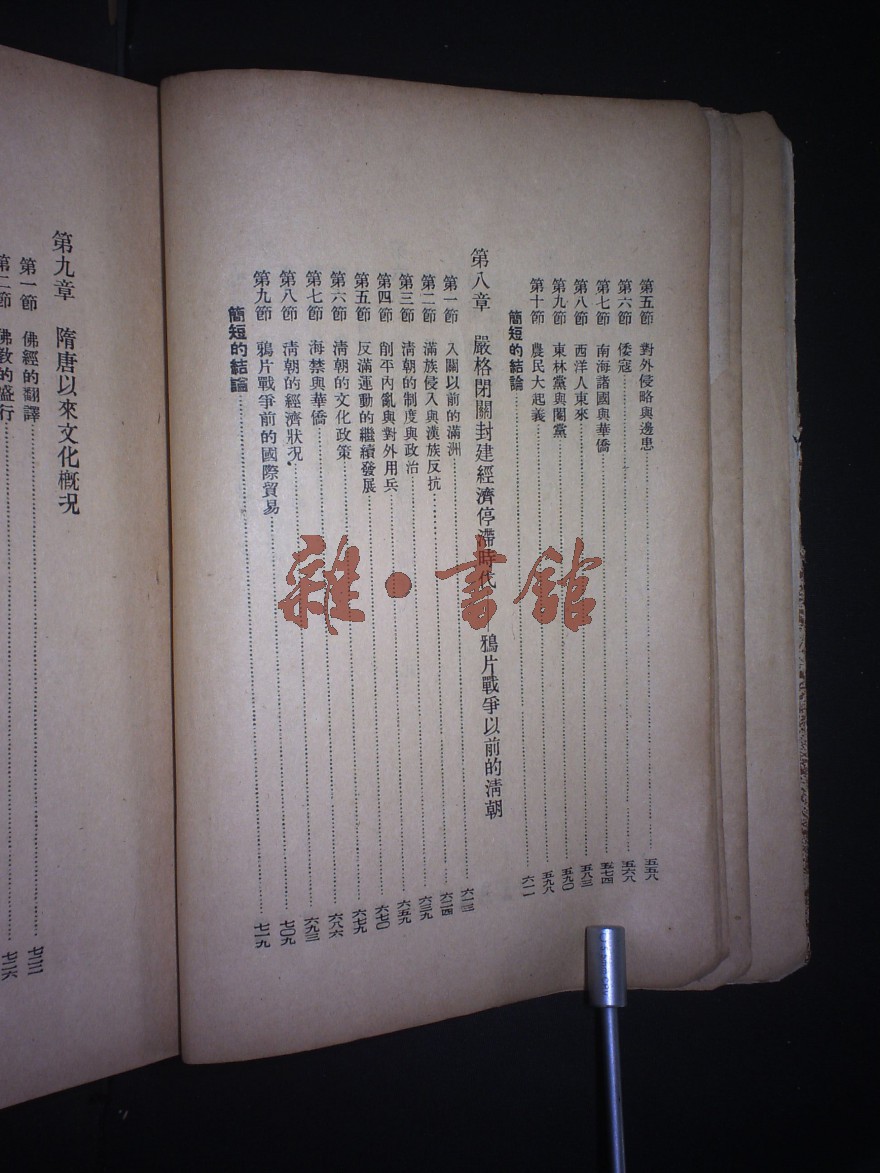 第五節 對外侵略與邊患……五五八
第六節 倭寇……五六八
第七節 南海諸國與華僑……五七四
第八節 西洋人東來……五八三
第九節 東林黨與閹黨……五九〇
第十節 農民大起義……五九八
簡短的結論……六一一
第八章 嚴格閉關封建經濟停滯時代——鴉片戰爭以前的清朝
第一節 入關以前的滿洲……六一三
第二節 滿族侵入與漢族反抗……六二四
第三節 清朝的制度與政治……六三九
第四節 削平內亂與對外用兵……六五九
第五節 反滿運動的繼續發展……六七〇
第六節 清朝的文化政策……六七九
第七節 海禁與華僑……六八六
第八節 清朝的經濟狀况……六九三
第九節 鴉片戰爭前的國際貿易……七〇九
簡短的結論……七一九
第九章 隋唐以來文化概况
第一節 佛經的翻譯……七二二
第二節 佛教的盛行……七二六
雜·書館